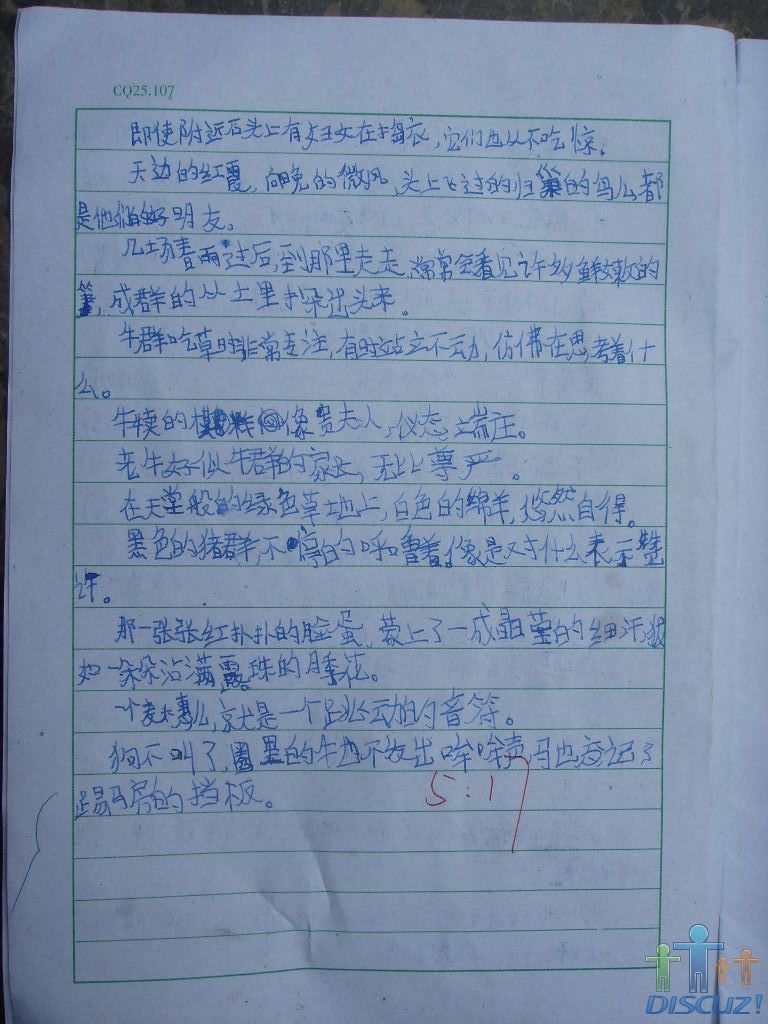 CQ25.107
即使附近石头上有妇女在捣衣,它们也从不吃惊。
天边的红霞,向晚的微风,头上飞过的归巢的鸟儿都
是他们的好朋友。
几场春雨过后,到那里走走,常常会看见许多鲜嫩的
笋,成群的从土里探出头来。
牛群吃草时非常专注,有时站立不动,仿佛在思考着什
么。
牛犊的模样像贵夫人,仪态端庄。
老牛好似牛群的家长,无比尊严。
在天堂般的绿色草地上,白色的绵羊,悠然自得。
黑色的猪群,不停的呼噜着。像是对什么表示赞
许。
那一张张红扑扑的脸蛋,蒙上了一成晶莹的细汗,
如一朵朵沾满露珠的月季花。
一个麦穗儿,就是一个跳动的音符。
狗不叫了,圈里的牛也不发出哞哞声,马也忘记了
踢马房的挡板。
5.17
DISCUZ!